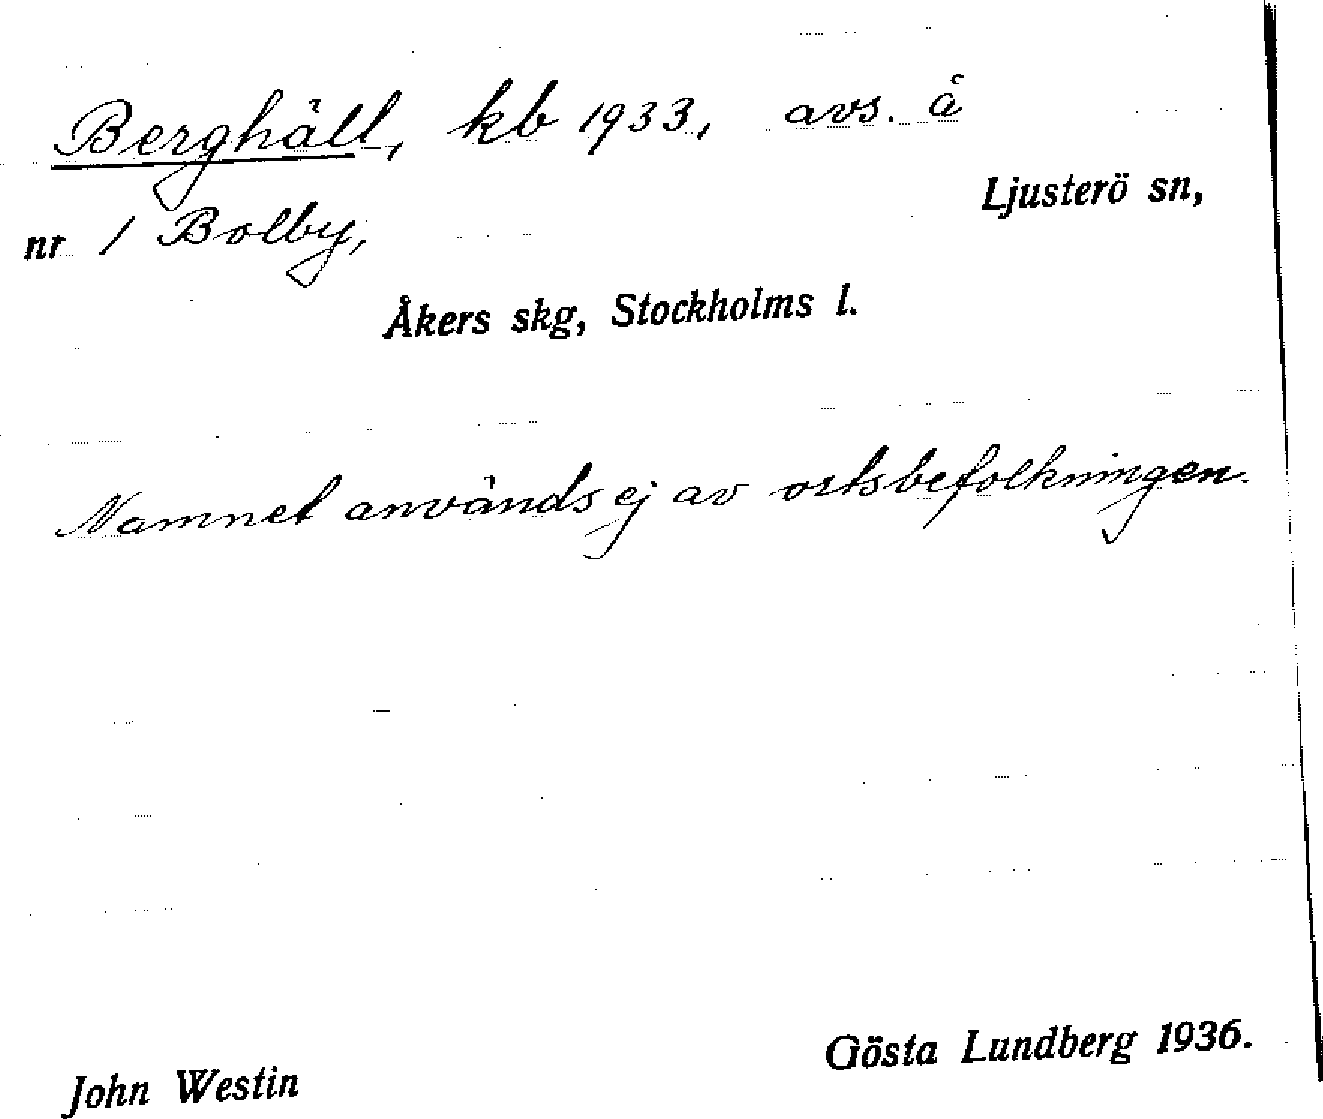 Berghäll, kb 1933, avs. å
Ljusterö sn,
nr 1 Bolby,
Åkers skg, Stockholms l.
Namnet används ej av ortsbefolkningen.
Gösta Lundberg 1936.
John Westin